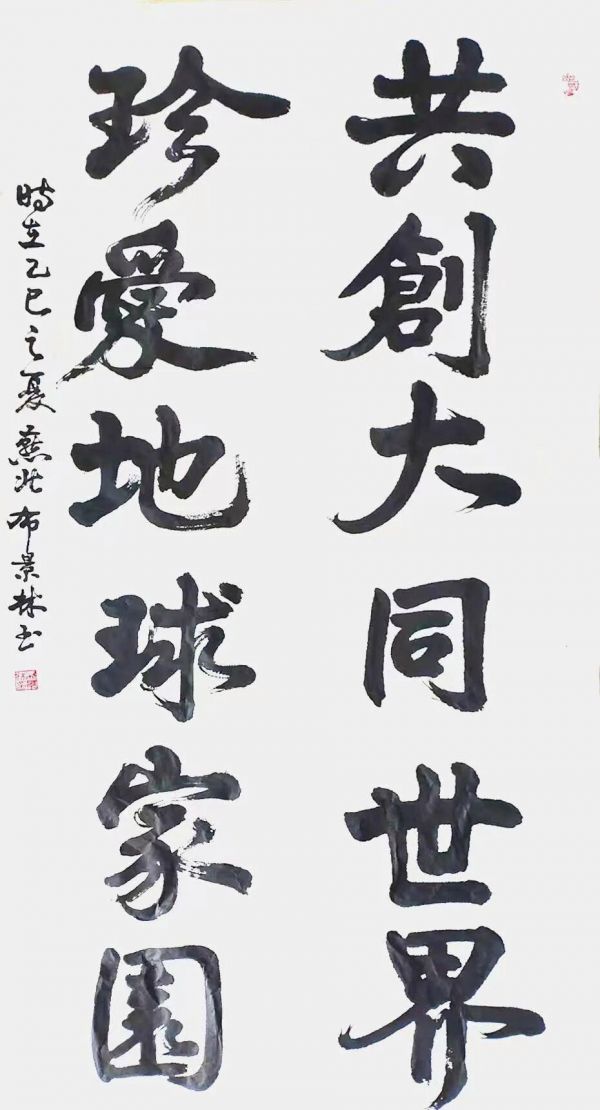 共創大同世界
珍愛地球家園
時在乙巳之夏燕北布景林书